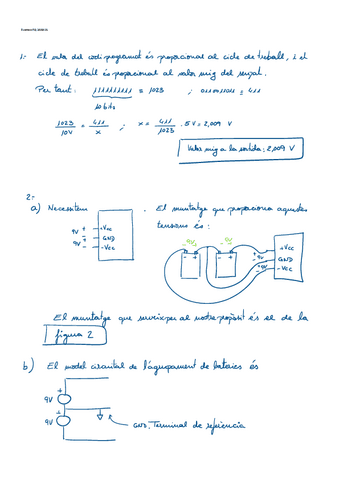 1:- El valor del codi programat és proporcional al cicle de treball, i el
cicle de treball és proporcional al valor mig del senyal.
Per tant: 1111111111 = 1023 ; 0110011011 = 411
10 bits
1023/10V = 411/x ; x = 411/1023 · 5V = 2,009 V
Valor mig a la sortida: 2,009 V
2:-
a) Necessitem
9V + +Vcc
GND
9V - -Vcc
. El muntatge que proporciona aquestes
tensions és:
9V 9V
- + - +
+Vcc
GND
-Vcc
+ 9V
+ 9V
El muntatge que serveix per al nostre propòsit és el de la
figura 2
b) El model circuital de l'agrupament de bateries és
+
9V
+
9V
GND, Terminal de referència